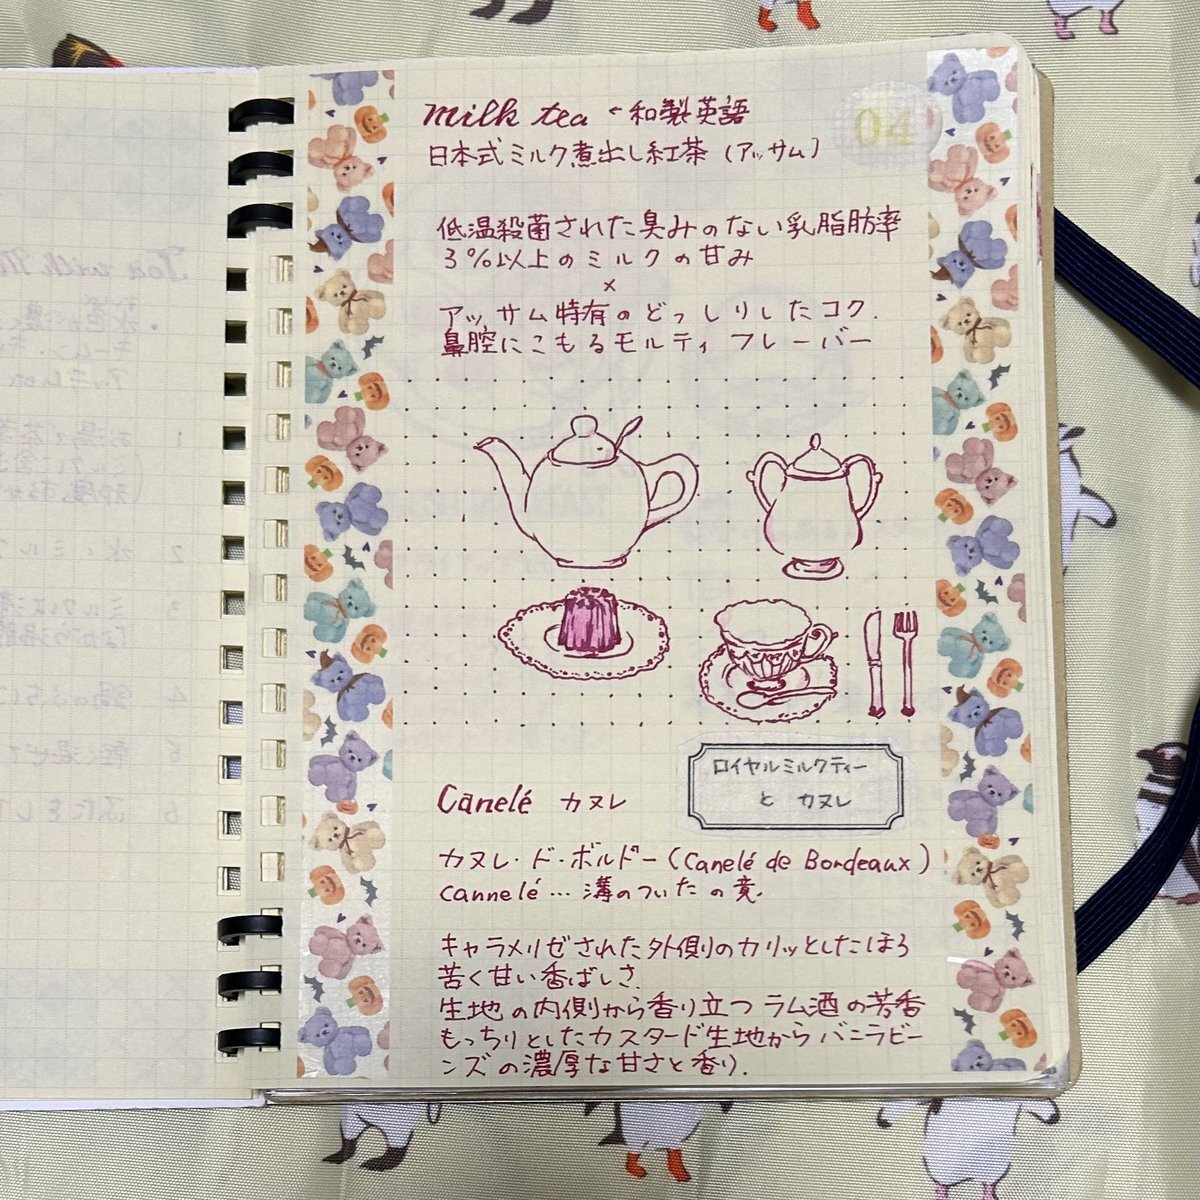 milk tea ←和製英語
04
日本式ミルク煮出し紅茶（アッサム）
低温殺菌された臭みのない乳脂肪率
3%以上のミルクの甘み
×
アッサム特有のどっしりしたコク.
鼻腔にこもるモルティフレーバー
ロイヤルミルクティー
と カヌレ
Canelé カヌレ
カヌレ・ド・ボルドー(Canelé de Bordeaux)
cannelé… 溝のついたの意.
キャラメリゼされた外側のカリッとしたほろ
苦く甘い香ばしさ.
生地の内側から香り立つ ラム酒の芳香
もっちりとしたカスタード生地から バニラビー
ンズの濃厚な甘さと香り.